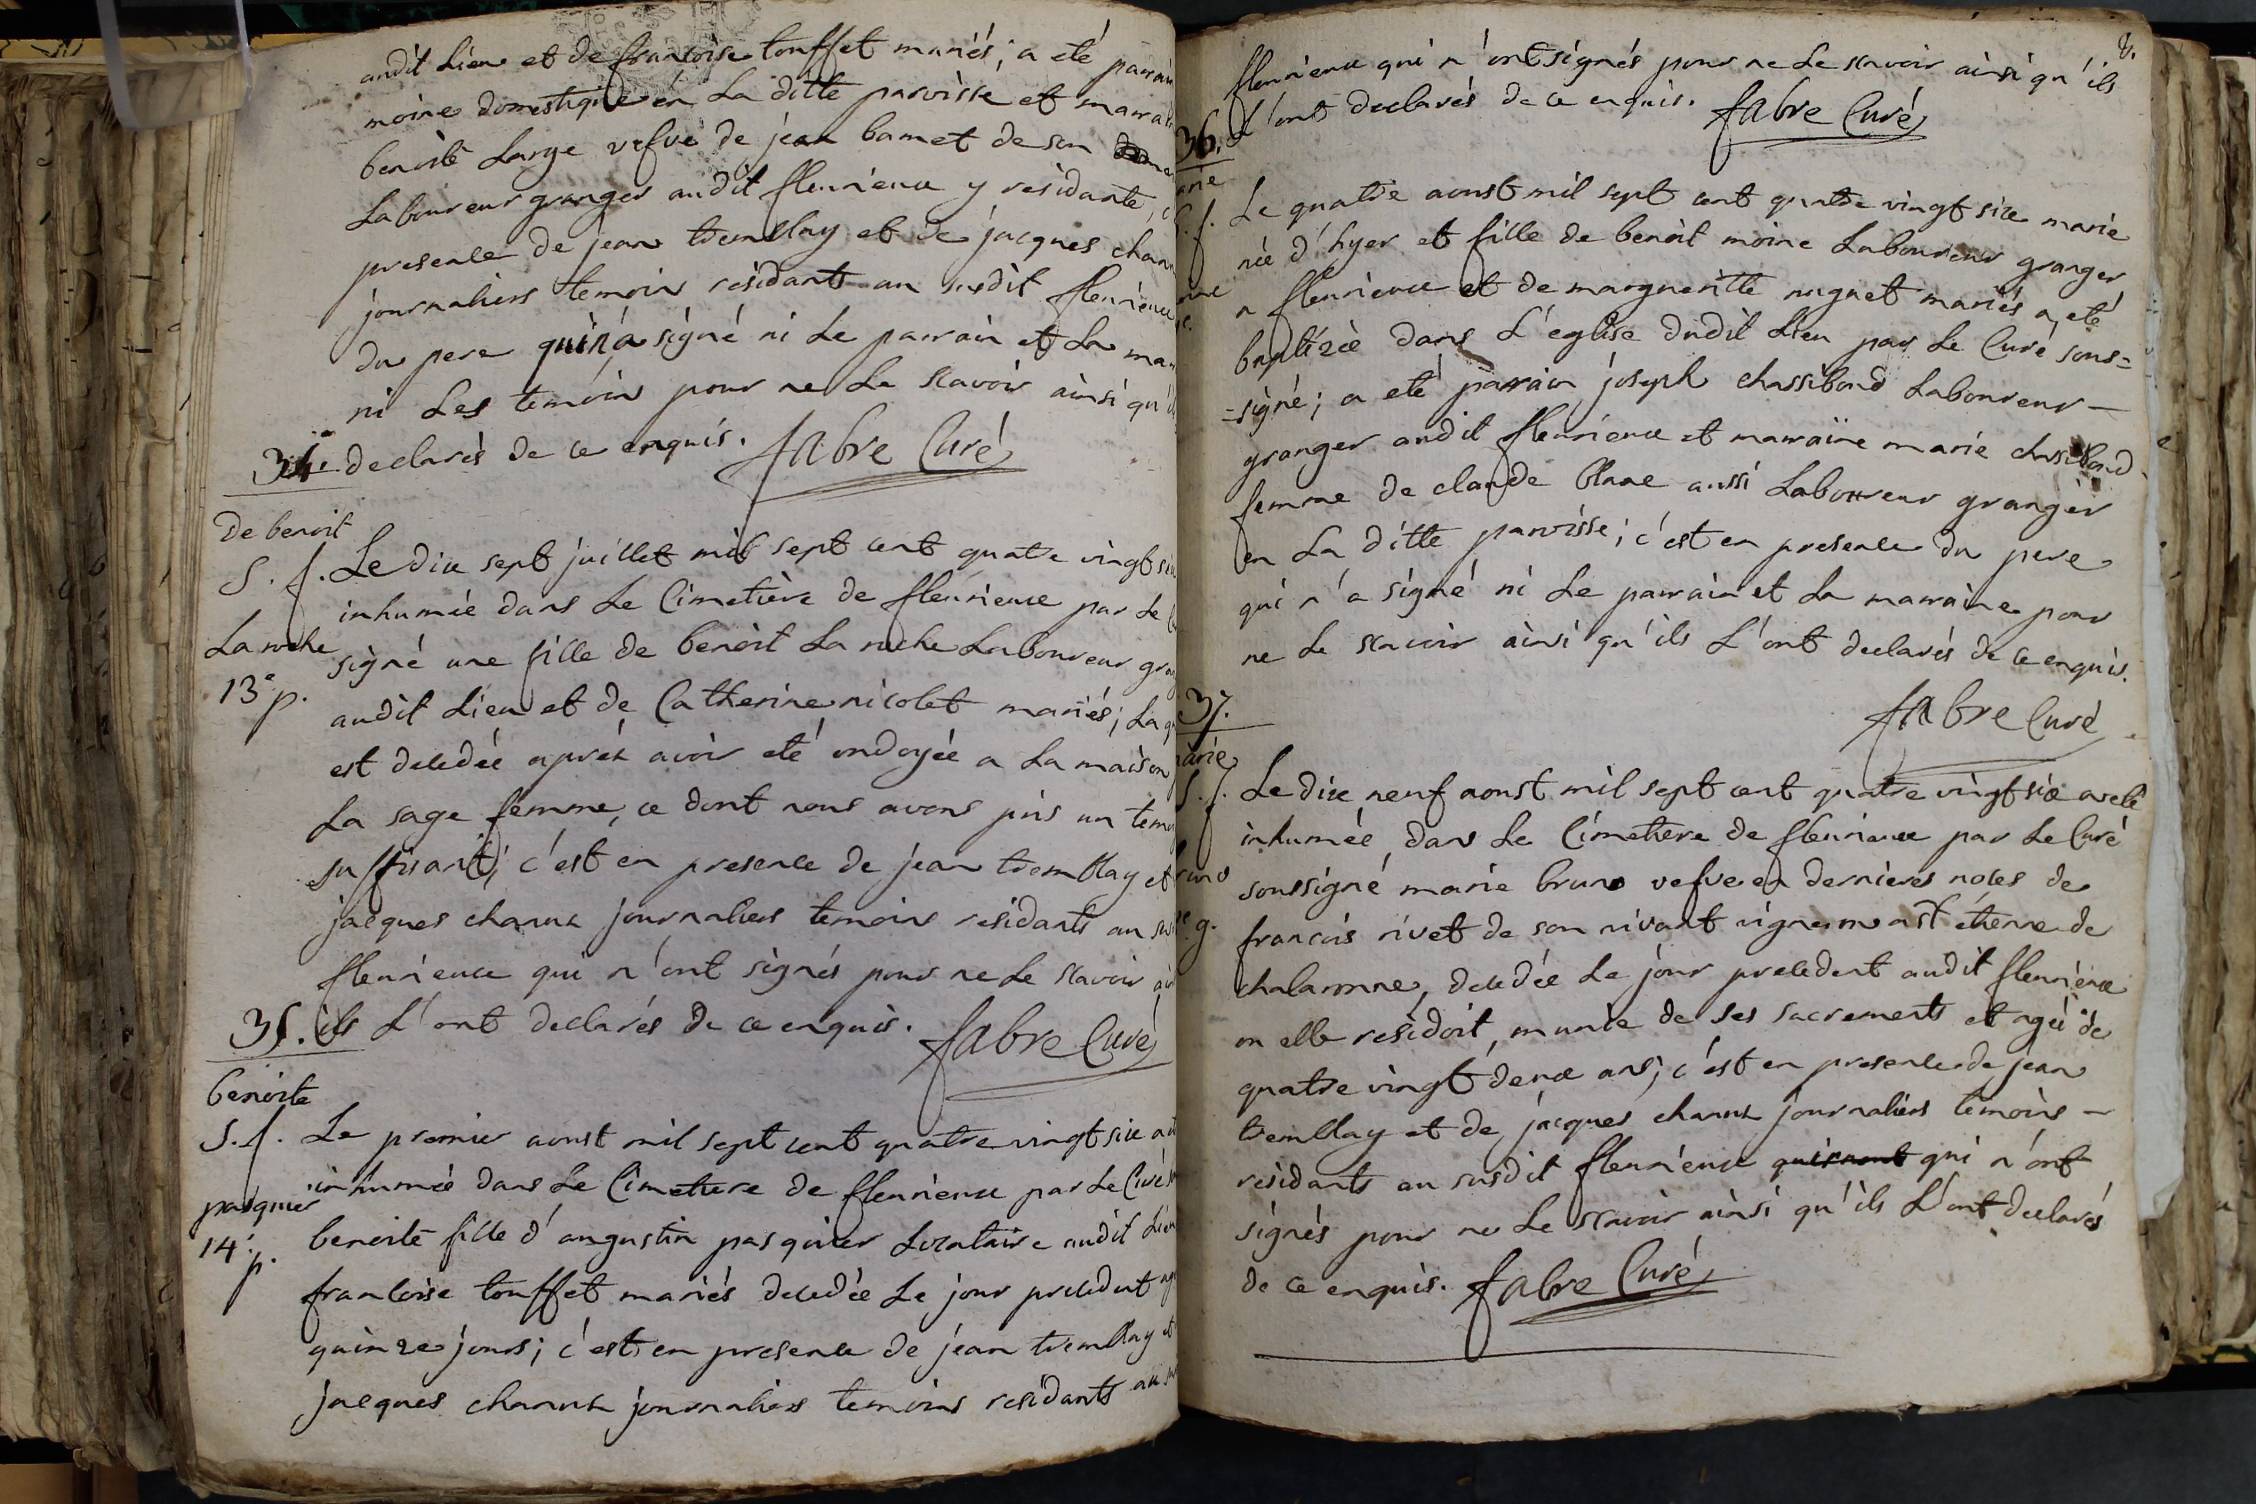 audit Lieu et de francoise touffet mariés; a eté parrain
moine domestique en La ditte paroisse et marrai
benoite Large vefve de jean bamet de son
Laboureur granger audit fleurieux y residante,
presence de jean tremblay et de jacques chan
journaliers temoins residants au susdit fleurieux
du pere qui n'a signé ni Le parrain et La mar
ni Les temoins pour ne Le scavoir ainsi qu'ils
34. declarés de ce enquis. fabre Curé
De benoit
S. f.
La roche
13e p.
Le dix sept juillet mil sept cent quatre vingt six
inhumée dans Le Cimetière de fleurieux par Le
signé une fille de benoit La roche Laboureur gran
audit Lieu et de Catherine nicolet mariés; La q
est decedée aprés avoir eté ondoyée a La maison
La sage femme, ce dont nous avons pris un temo
suffisant; c'est en presence de jean tremblay et
jacques charux journaliers temoins residants au sus
fleurieux qui n'ont signés pour ne Le scavoir ain
35. ils L'ont declarés de ce enquis. fabre Curé
benoite
S. f.
pasquier
14e p.
Le premier aoust mil sept cent quatre vingt six a eté
inhumée dans Le Cimetiere de fleurieux par Le Curé
benoite fille d'augustin pasquier Locataire audit Lieu
francoise touffet mariés decedée Le jour precedent
quinze jours; c'est en presence de jean tremblay et
jacques charux journaliers temoins residants au
8.
fleurieux qui n'ont signés pour ne Le scavoir ainsi qu'ils
L'ont declarés de ce enquis. fabre Curé
36.
arie
S. f.
Le quatre aoust mil sept cent quatre vingt six marie
née d'hyer et fille de benoit moine Laboureur granger
a fleurieux et de margueritte nuguet mariés a eté
baptizée dans L'eglise dudit Lieu par Le Curé sous=
=signé; a eté parrain joseph chassibond Laboureur —
granger audit fleurieux et marraine marie chassibond
femme de claude blanc aussi Laboureur granger
en La ditte paroisse; c'est en presence du pere
qui n'a signé ni Le parrain et La marraine pour
ne Le scavoir ainsi qu'ils L'ont declarés de ce enquis.
fabre Curé
37.
marie
S. f.
Le dix neuf aoust mil sept cent quatre vingt six a eté
inhumée dans Le Cimetiere de fleurieux par Le Curé
soussigné marie brun vefve en dernieres noces de
francois rivet de son vivant vigneron a st étienne de
chalaronne, decedée Le jour precedent audit fleurieux
ou elle residoit, munie de ses sacrements et agée de
quatre vingt deux ans; c'est en presence de jean
tremblay et de jacques charux journaliers temoins —
residants au susdit fleurieux qui n'ont
signés pour ne Le scavoir ainsi qu'ils L'ont declarés
de ce enquis. fabre Curé